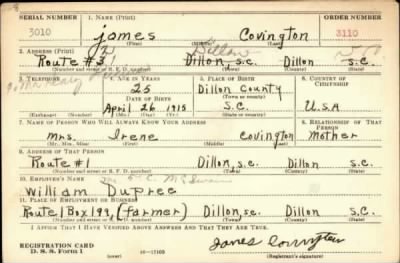 SERIAL NUMBER 1. NAME (Print) ORDER NUMBER
3010 James Covington 3110
(First) (Middle) (Last)
2. ADDRESS (Print)
Route #3 Dillon, S.C. Dillon S.C.
(Number and street or R. F. D. number) (Town) (County) (State)
3. TELEPHONE 4. AGE IN YEARS 5. PLACE OF BIRTH 6. COUNTRY OF CITIZENSHIP
25 Dillon County
DATE OF BIRTH (Town or county)
April 26 1915 S.C. U.S.A
(Exchange) (Number) (Mo.) (Day) (Yr.) (State or country)
7. NAME OF PERSON WHO WILL ALWAYS KNOW YOUR ADDRESS 8. RELATIONSHIP OF THAT PERSON
Mrs. Irene Covington Mother
(Mr., Mrs., Miss) (First) (Middle) (Last)
9. ADDRESS OF THAT PERSON
Route #1 Dillon, S.C. Dillon S.C.
(Number and street or R. F. D. number) (Town) (County) (State)
10. EMPLOYER'S NAME
William Dupree
11. PLACE OF EMPLOYMENT OR BUSINESS
Route 1 Box 199, (farmer) Dillon, S.C. Dillon S.C.
(Number and street or R. F. D. number) (Town) (County) (State)
I AFFIRM THAT I HAVE VERIFIED ABOVE ANSWERS AND THAT THEY ARE TRUE.
REGISTRATION CARD
D. S. S. Form 1
James Covington
(Registrant's signature)